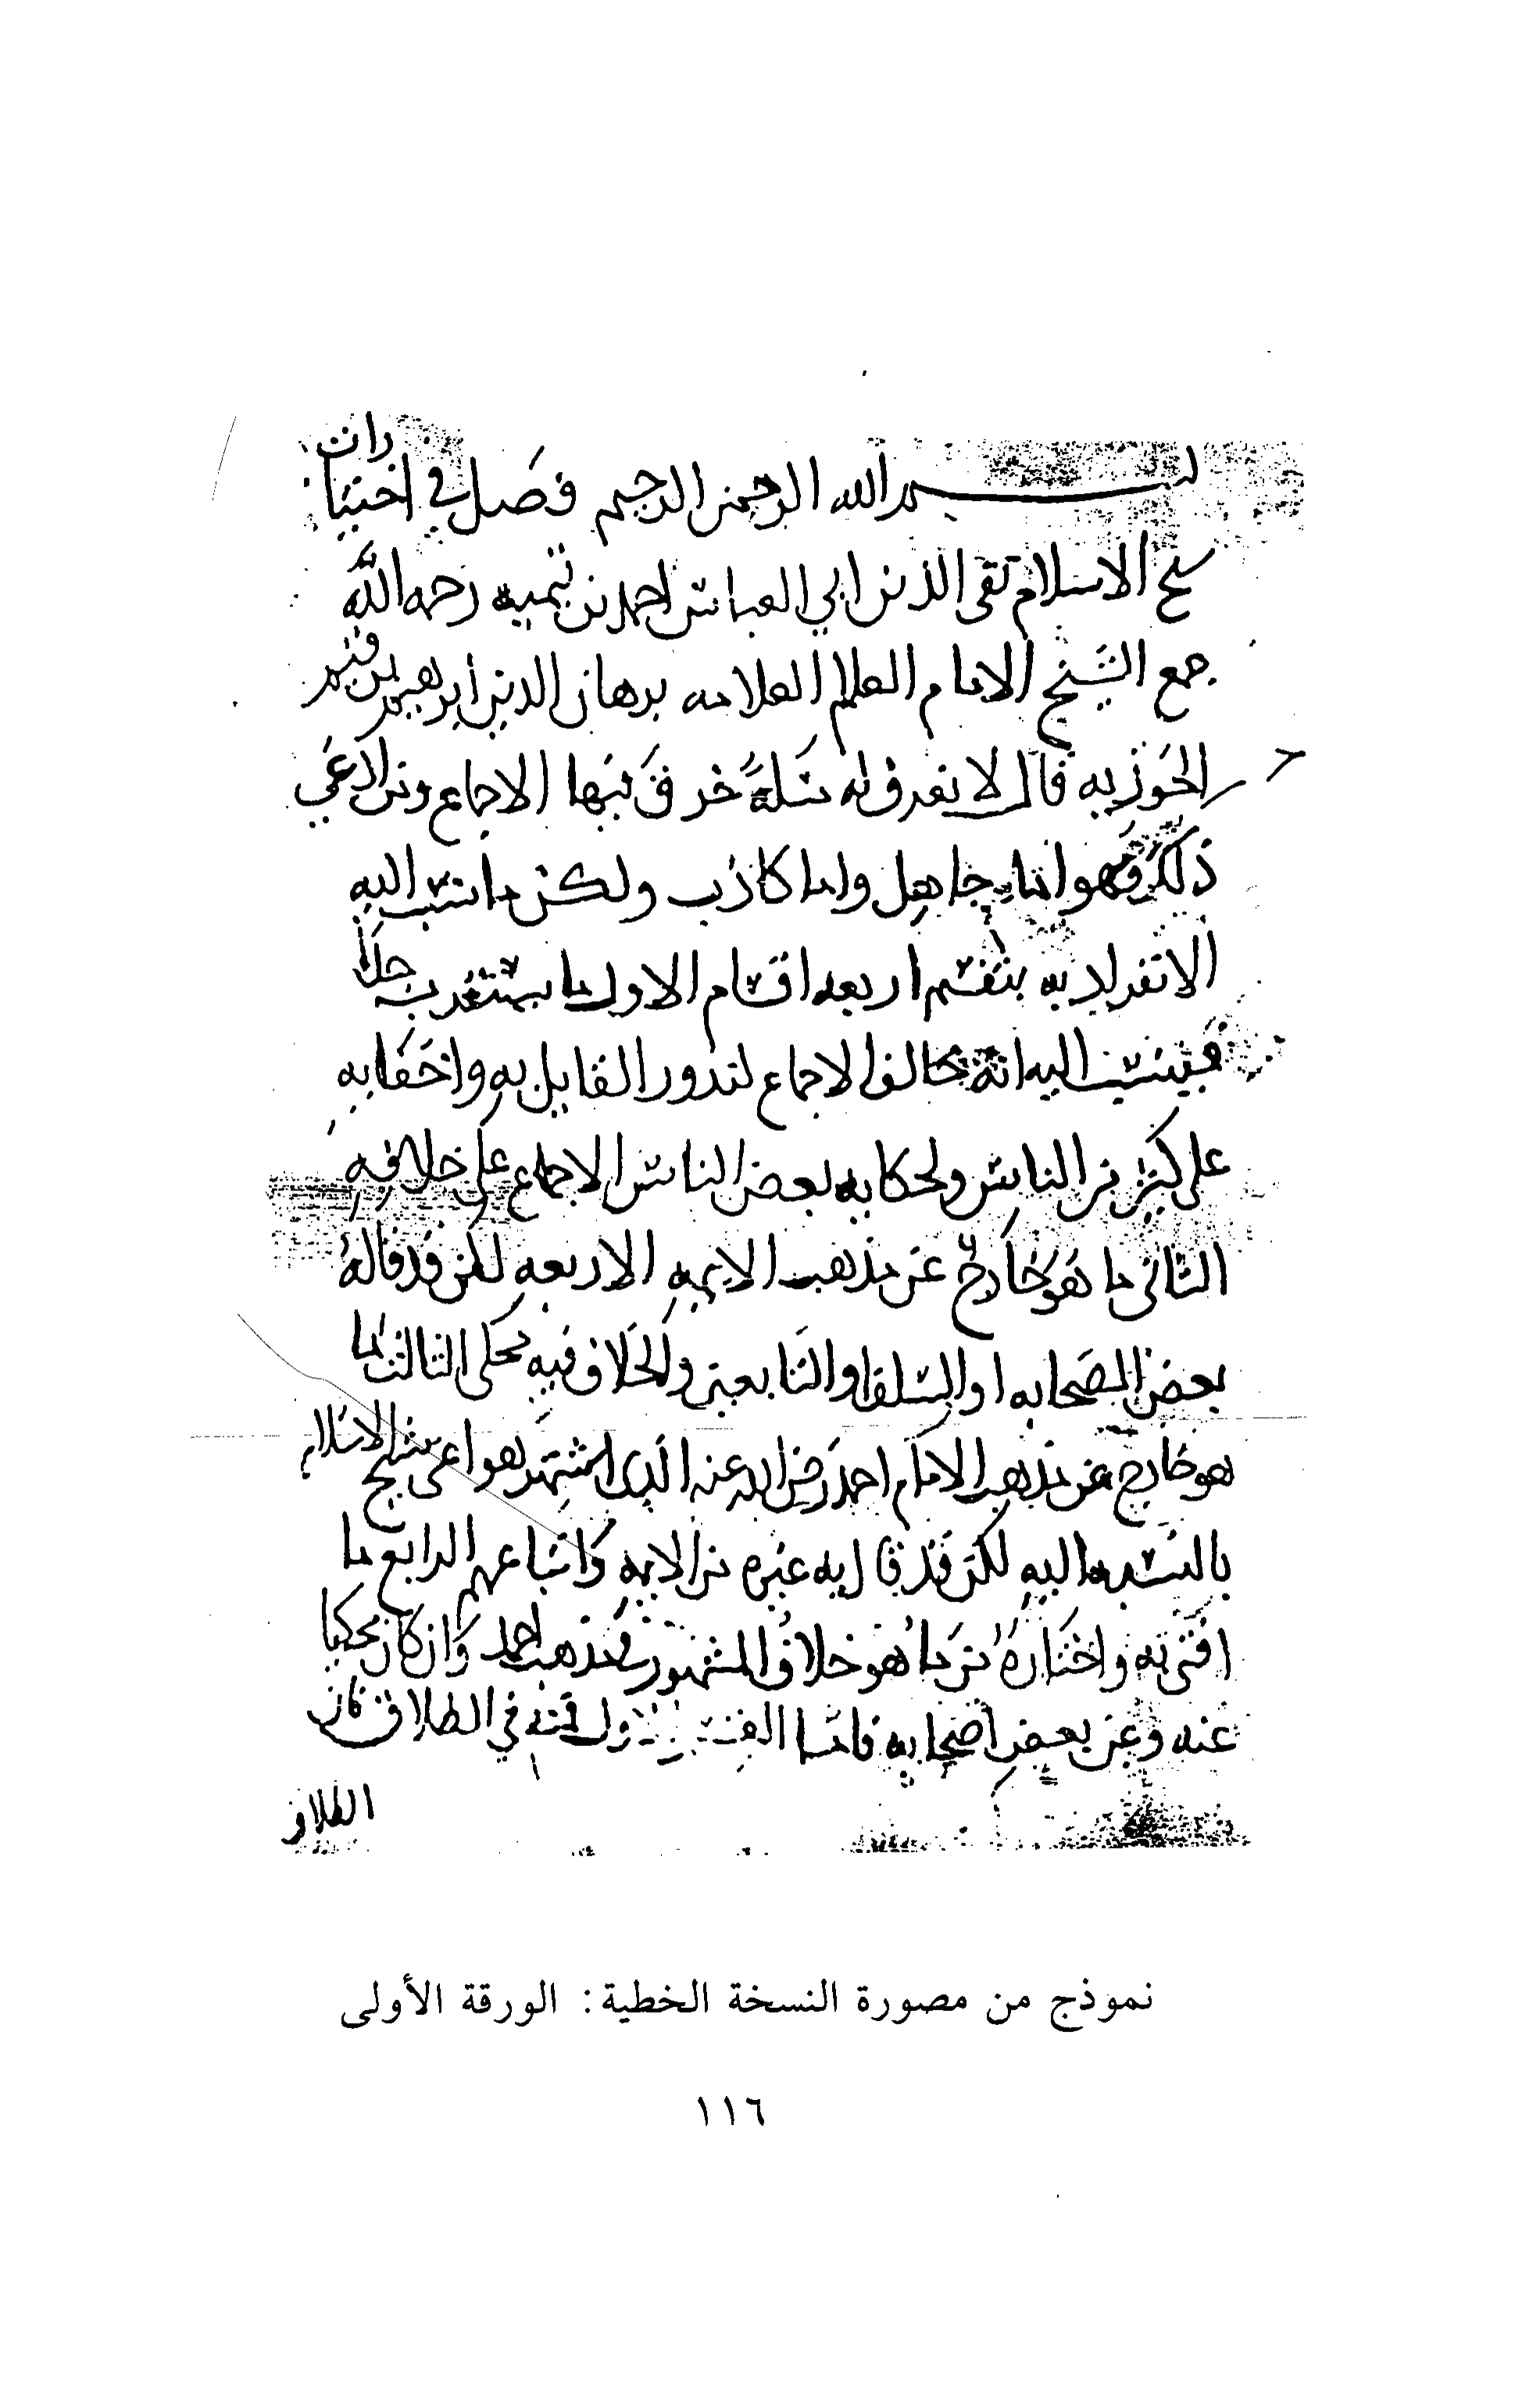 بسم الله الرحمن الرحيم فصل في اختيارات
شيخ الاسلام تقي الدين ابي العباس احمد بن تيميه رحمه الله
جمع الشيخ الامام العالم العلامه برهان الدين ابرهيم بن قيم
الجوزيه قال لا نعرف له مسلة خرق فيها الاجماع ومن ادعى
ذلك فهو اما جاهل واما كاذب ولكن ما نسب اليه
الانفراد به ينقسم اربعه اقسام الاول ما يستغرب جدا
فينسب اليه انه خالف الاجماع لندور القايل به واخفايه
على كثير من الناس ولحكايه بعض الناس الاجماع على خلافه
الثاني ما هو خارج عن مذهب الايمه الاربعه لكن قد قاله
بعض الصحابه او السلف او التابعين والخلاف فيه محكى الثالث ما
هو خارج عن مذهب الامام احمد رضي الله عنه الذي اشتهر هو اعني شيخ الاسلام
بالنسبه اليه لكن قد قال به غيره من الايمه واتباعهم الرابع ما
افتى به واختاره مما هو خلاف المشهور في مذهب احمد وان كان محكيا
عنه وعن بعض اصحابه فاما القسم الاول فمنه في الطلاق فان
الطلاق
نموذج من مصورة النسخة الخطية: الورقة الأولى
١١٦